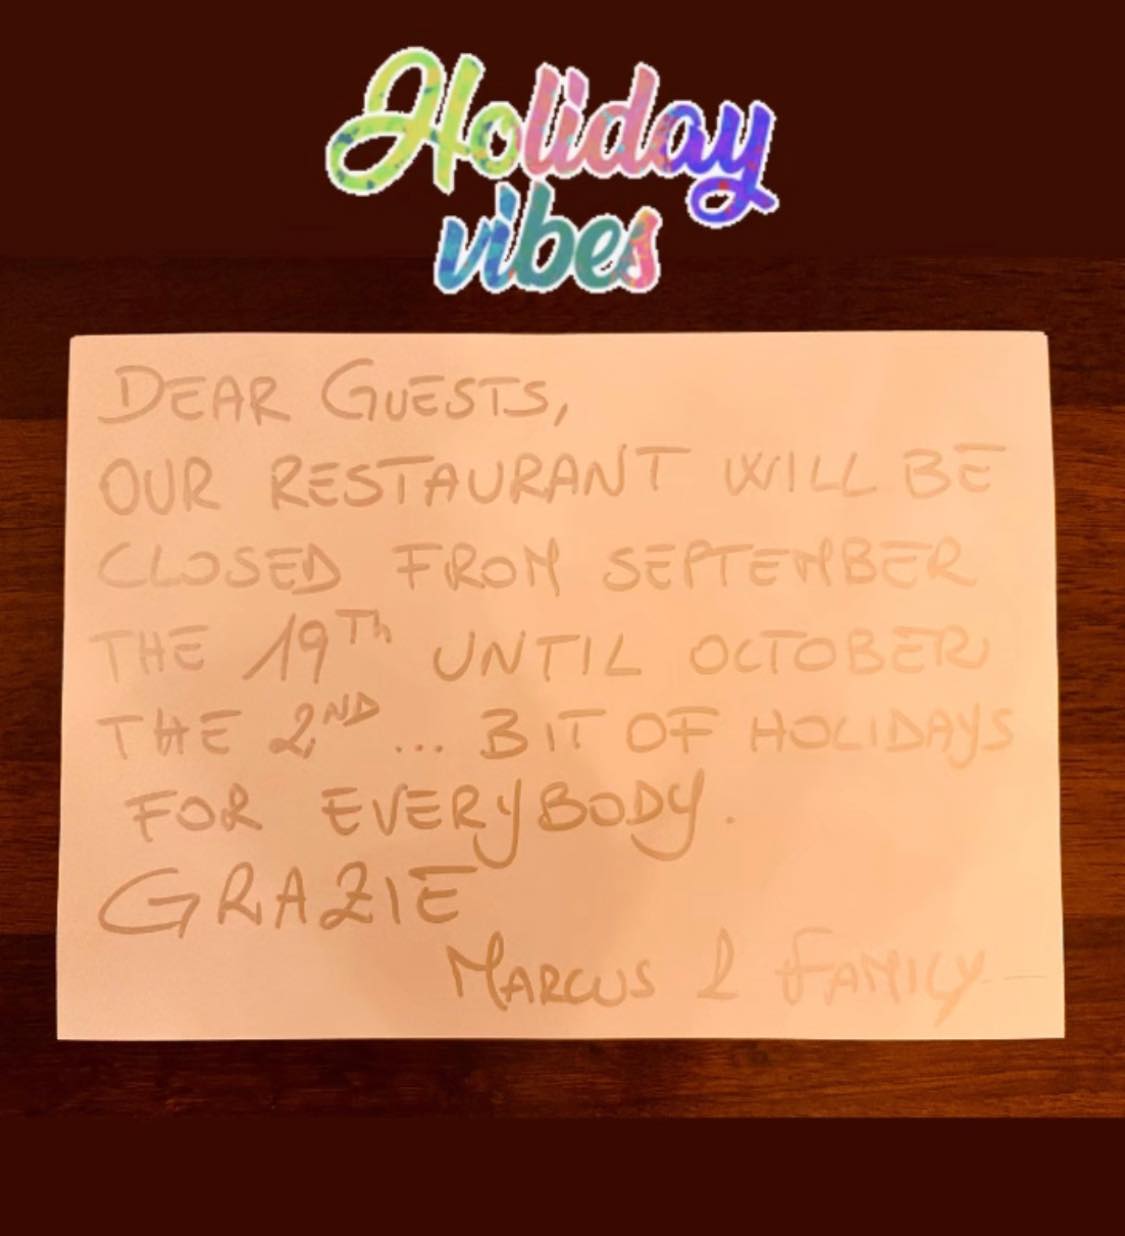 Holiday
vibes
DEAR GUESTS,
OUR RESTAURANT WILL BE
CLOSED FROM SEPTEMBER
THE 19Th UNTIL OCTOBER
THE 2ND ... BIT OF HOLIDAYS
FOR EVERYBODY.
GRAZIE
MARCUS & FAMILY